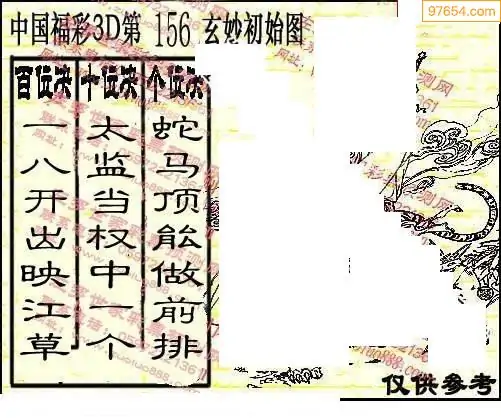 97654.com
中国福彩3D第 156 玄妙初始图
百位决
一八开出映江草
十位决
太监当权中一个
个位决
蛇马顶能做前排
仅供参考